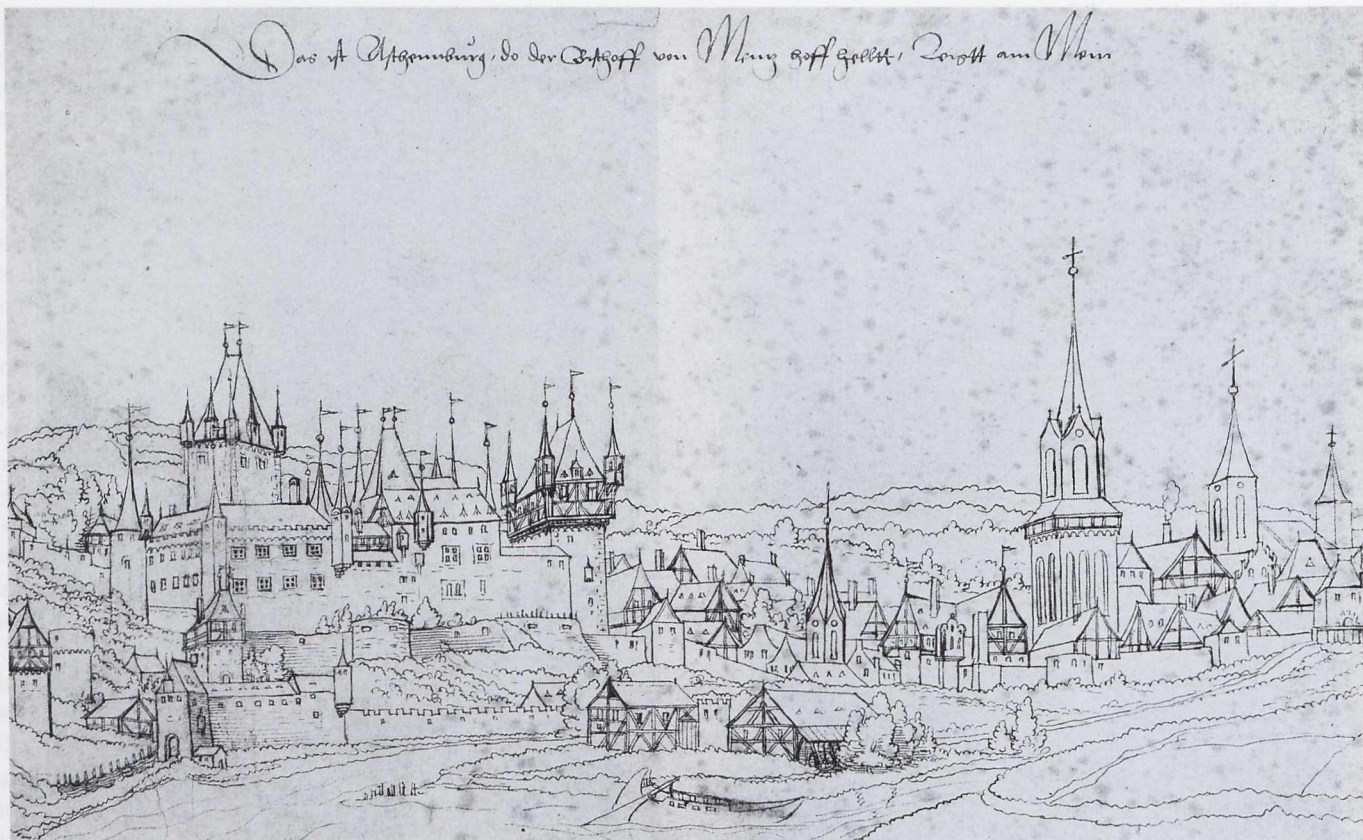 Das ist Aschennburg, do der Bischoff von Menz hoff helltt, Leigtt am Mein